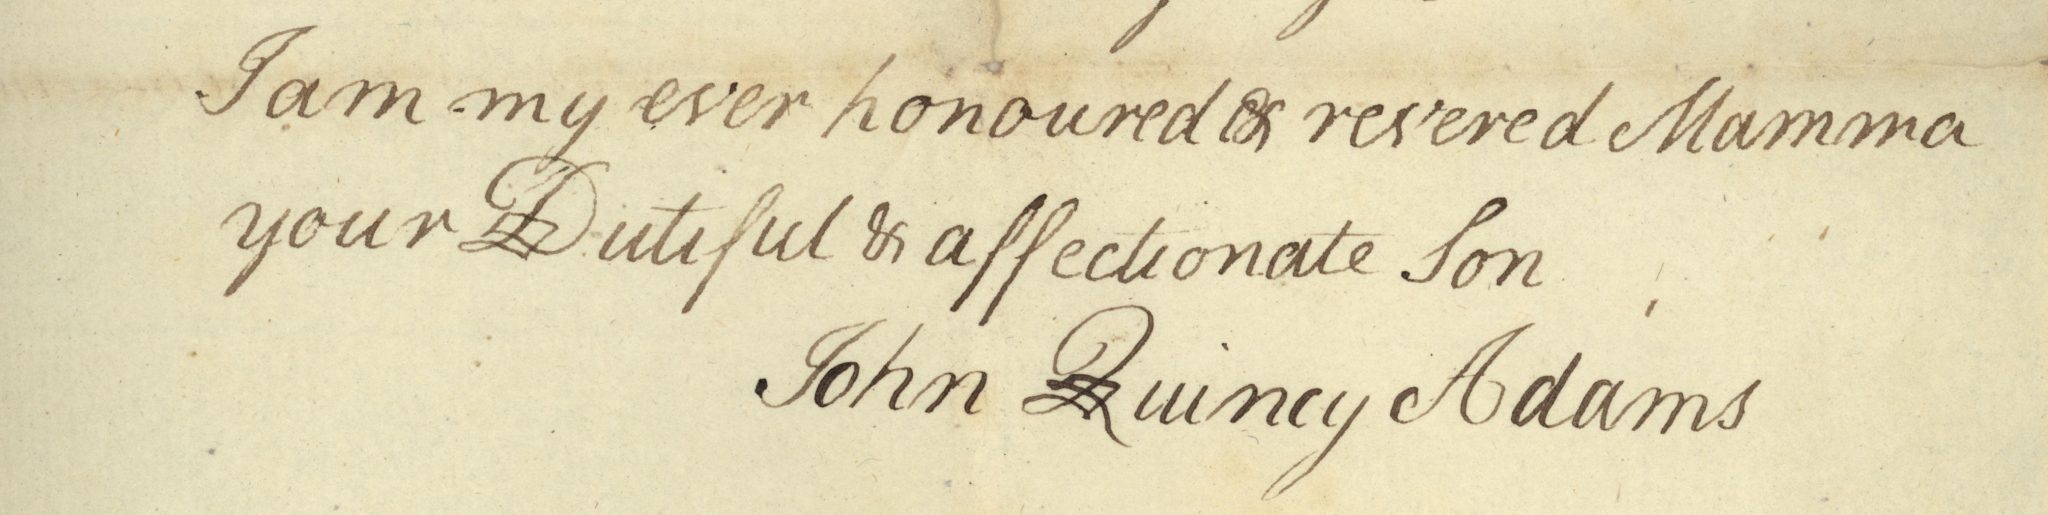 I am my ever honoured & revered Mamma
your Dutiful & affectionate Son
John Quincy Adams